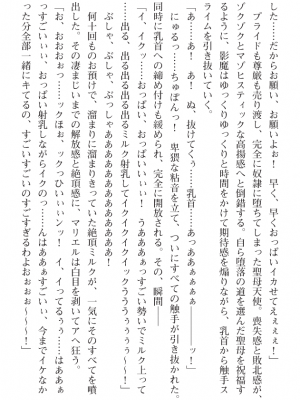 した……だからお願い、お願いよぉ！　早く、早くおっぱいイカせてえぇぇぇ！」
　プライドも尊厳も売り渡し、完全に奴隷に堕ちてしまった聖母天使。喪失感と敗北感が、
ゾクゾクとマゾヒスティックな高揚感へと倒錯する。自ら堕落の道を選んだ聖母を祝福す
るように、影魔はゆっくりゆっくりと時間をかけて期待感を煽りながら、乳首から触手ス
ライムを引き抜いていく。
「あ……あ！　あ！　ぬ、抜けてくぅ……乳首……あっあぁぁぁぁ～～！」
　にゅるっ……ちゅぽんっ！　卑猥な粘音を立て、ついにすべての触手が引き抜かれた。
同時に乳首への締め付けも緩められ、完全に開放される。その、瞬間──
「イ、イクッ……おっぱい、おっぱいぃぃ！　うあぁぁぁっすごい勢いでミルク上って
……出る、出る出る出るミルク射乳してイクイクイクイックううううぅぅぅぅ～！」
　ぶしゃ、ぶしゃ、ぶしゃあああああああああああああああああああああああああ～～！
　何十回ものお預けで、溜まりに溜まりきっていた絶頂ミルクが、一気にそのすべてを噴
出した。その凄まじいまでの解放感と絶頂感に、マリエルは白目を剥いてアヘ狂う。
「お、おおぉぉっ……ックほぉ、ックっひいぃぃンッ！　イ、イってるぅぅ……はあああ
っすごいいぃ、おっぱい射乳しながらイクのっ……んはああぁすごいぃ、今までイケなか
った分全部一緒にキてるの、すごいすごいのすごすぎるわよおおぉぉ～～～！」